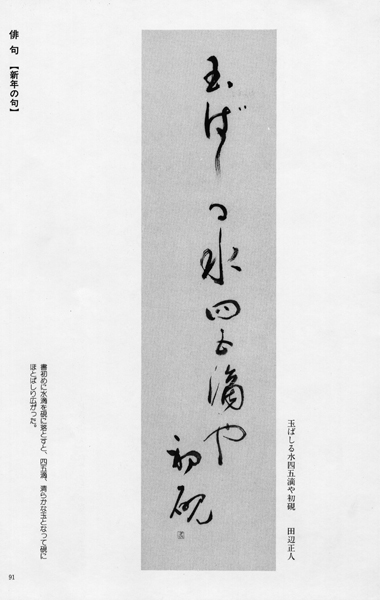 俳句【新年の句】
玉ばしる水四五滴や
初硯
玉ばしる水四五滴や初硯 田辺正人
書初めに水滴を硯に落とすと、四五滴、清らかな玉となって硯に
ほとばしり広がった。
91